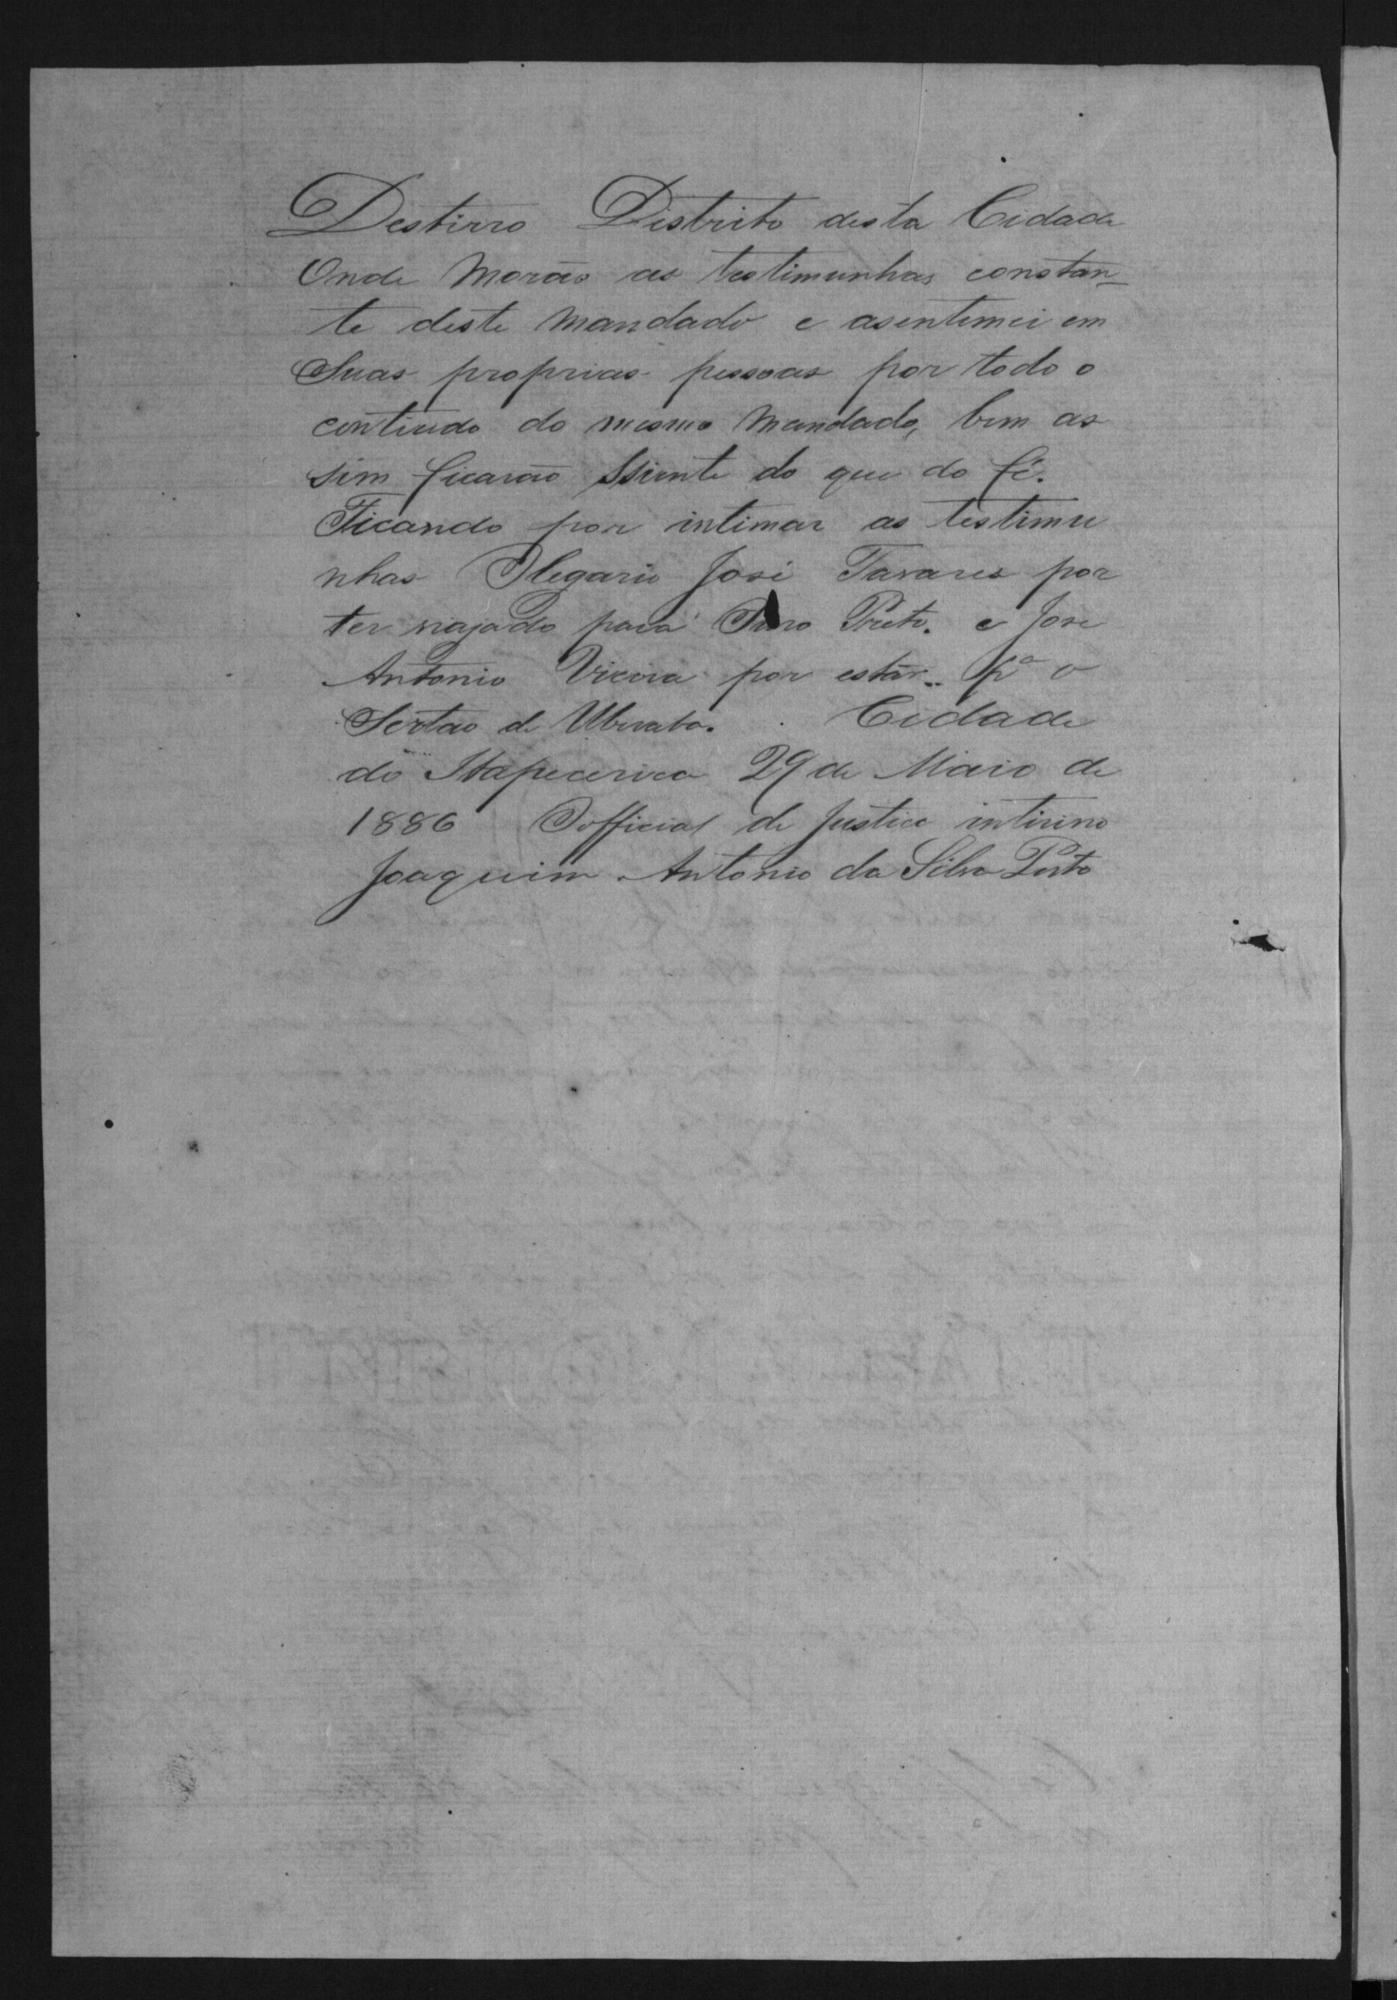 Destirro Distrito desta Cidade
Onde Morão as testimunhas constan-
te deste Mandado e asentimei em
Suas proprias pessoas por todo o
contiudo do mesmo Mandado, bem as
sim ficarão Ssiente do que do fé.
Ficando por intimar as testimu
nhas Olegario José Tavares por
ter viajado para Ouro Preto. e Jose
Antonio Vieira por estar.. pª o
Sertão de Uberaba. Cidade
do Itapecerica 29 de Maio de
1886 Oofficial de Justica intirino
Joaquim Antonio da Silva Porto